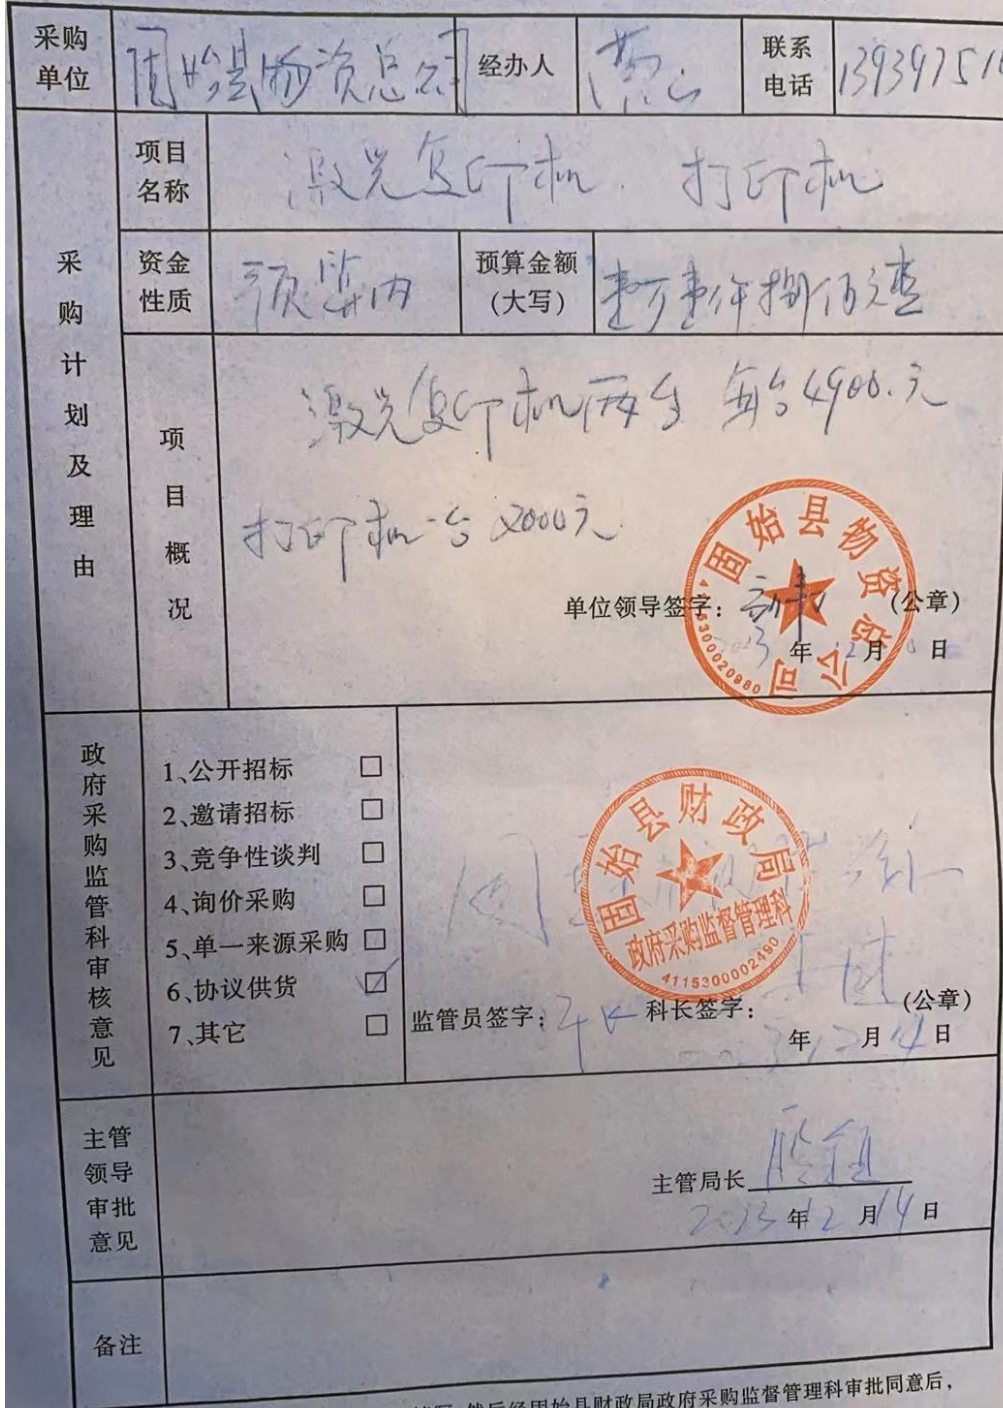 采购单位 固始县物资总公司 经办人 联系电话 139397516
采购计划及理由
项目名称 激光复印机、打印机
资金性质 预算内 预算金额(大写) 壹万壹仟捌佰元整
项目概况
激光复印机两台 每台4900.元
打印机一台 2000元
单位领导签字: (公章)
2013年12月 日
固始县物资总公司
4115300020980
政府采购监管科审核意见
1、公开招标 □
2、邀请招标 □
3、竞争性谈判 □
4、询价采购 □
5、单一来源采购 □
6、协议供货 ☑
7、其它 □
固始县财政局
政府采购监督管理科
4115300002490
监管员签字: 科长签字: (公章)
2013年12月14日
主管领导审批意见
主管局长
2013年12月14日
备注
然后经固始县财政局政府采购监督管理科审批同意后,